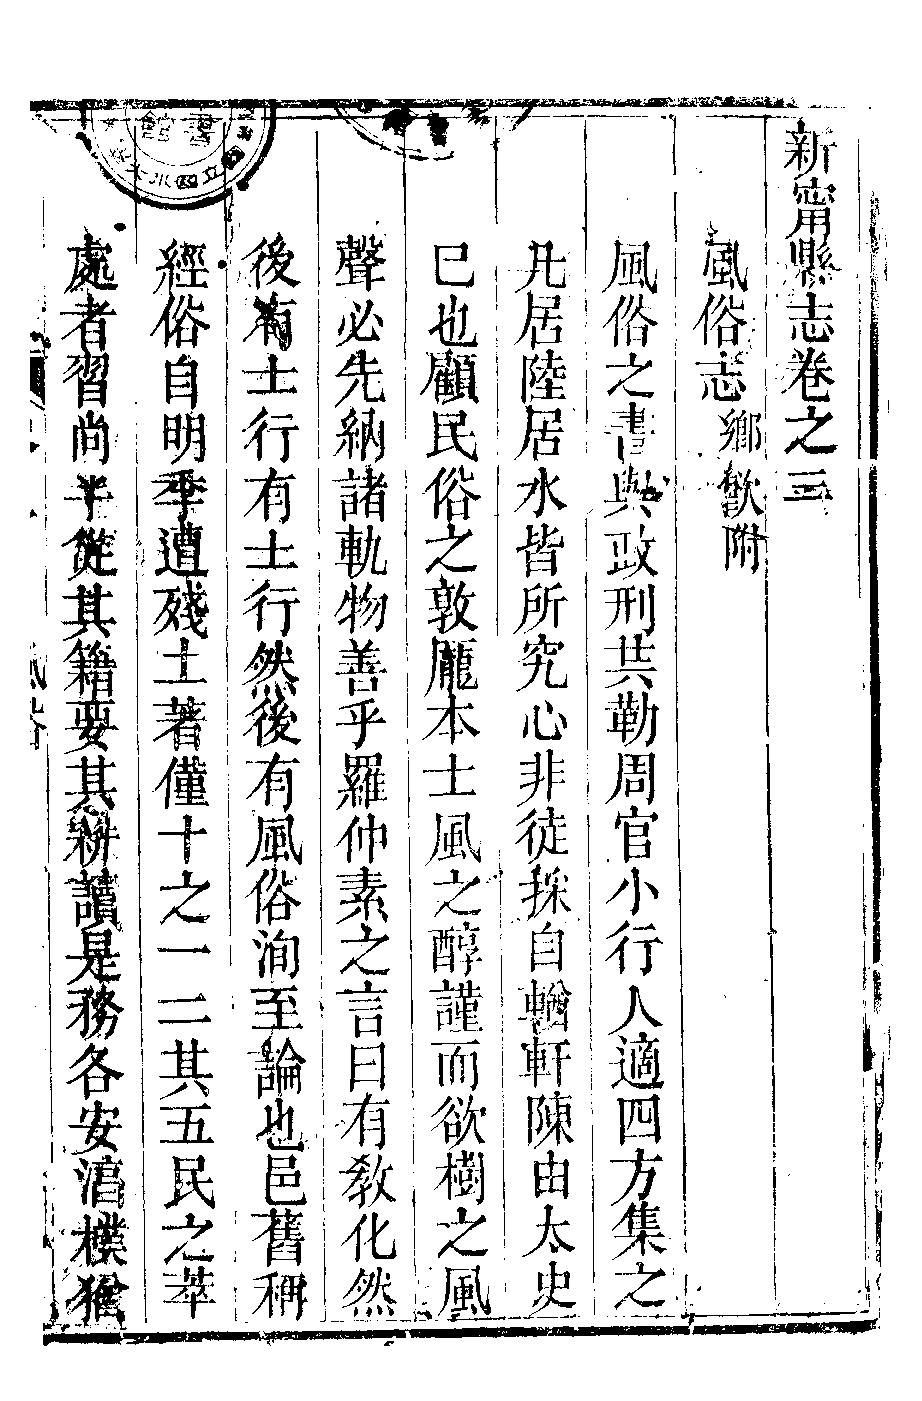 新甯縣志卷之三
風俗志 鄉歓附
風俗之書與政刑共勒周官小行人適四方集之
凡居陸居水皆所究心非徒採自輶軒陳由太史
已也顧民俗之敦龐本士風之醇謹而欲樹之風
聲必先納諸軌物善乎羅仲素之言曰有教化然
後有士行有士行然後有風俗洵至論也邑舊稱
經俗自明季遭殘土著僅十之一二其五民之萃
處者習尚半從其籍要其耕讀是務各安湻樸猶